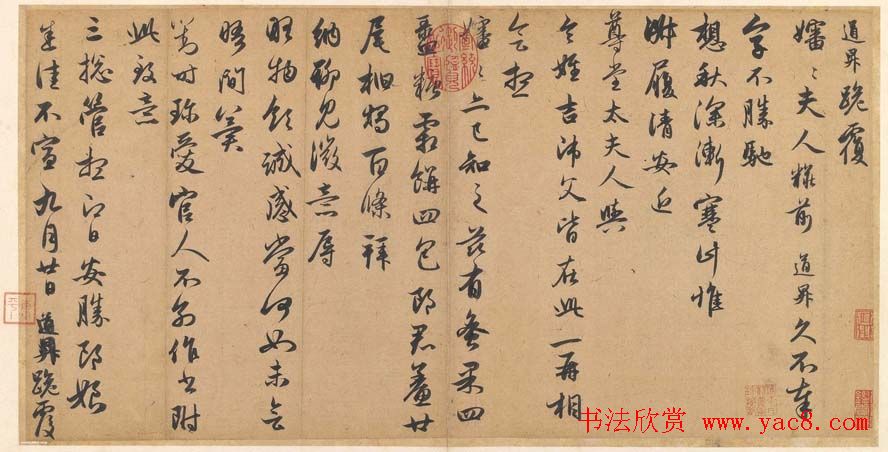 道昇跪覆
嬸ミ夫人糚前 道昇久不奉
字不勝馳
想秋深漸寒計惟
淑履請安近
尊堂太夫人與
令姪吉師父皆在此一再相
會想
嬸ミ亦已知之茲有蜜果四
盝糖霜餅四包郎君鯗廿
尾桕燭百條拜
納聊見微意辱
略物領誠感當何如未會
晤間冀
對時珍愛官人不別作書附
此致意
三總管想即日安勝郎娘
悉佳不宣九月廿日 道昇跪覆
书法欣赏 www.yac8.com